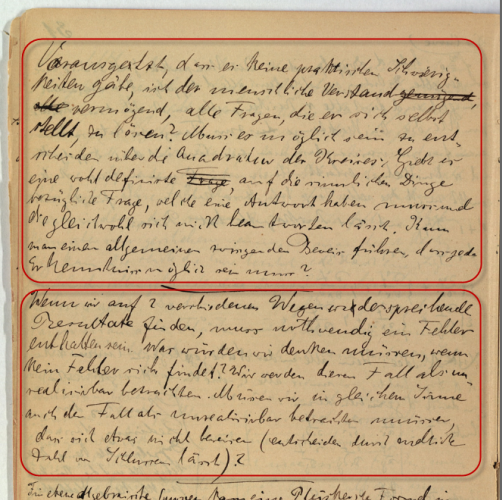 Vorausgesetzt, dass es keine praktischen Schwierig-
keiten gäbe, ist der menschliche Verstand genügend
vermögend, alle Fragen, die er sich selbst
stellt, zu lösen? Muss es möglich sein zu ent-
scheiden über die Quadratur des Kreises? Giebt es
eine wohl definirte Frage, auf die sinnlichen Dinge
bezügliche Frage, welche eine Antwort haben muss und
die gleichwohl sich nicht beantworten lässt. Kann
man einen allgemeinen zwingenden Beweis führen, dass jede
Erkenntniss möglich sein muss?
Wenn wir auf 2 verschiedenen Wegen widersprechende
Resultate finden, muss nothwendig ein Fehler
enthalten sein. Was würden wir denken müssen, wenn
kein Fehler sich findet? Wir werden diesen Fall als un-
realisirbar betrachten. Müssen wir in gleichem Sinne
auch den Fall als unrealisirbar betrachten müssen,
dass sich etwas nicht beweisen (entscheiden durch endliche
Zahl von Schlüssen lässt)?